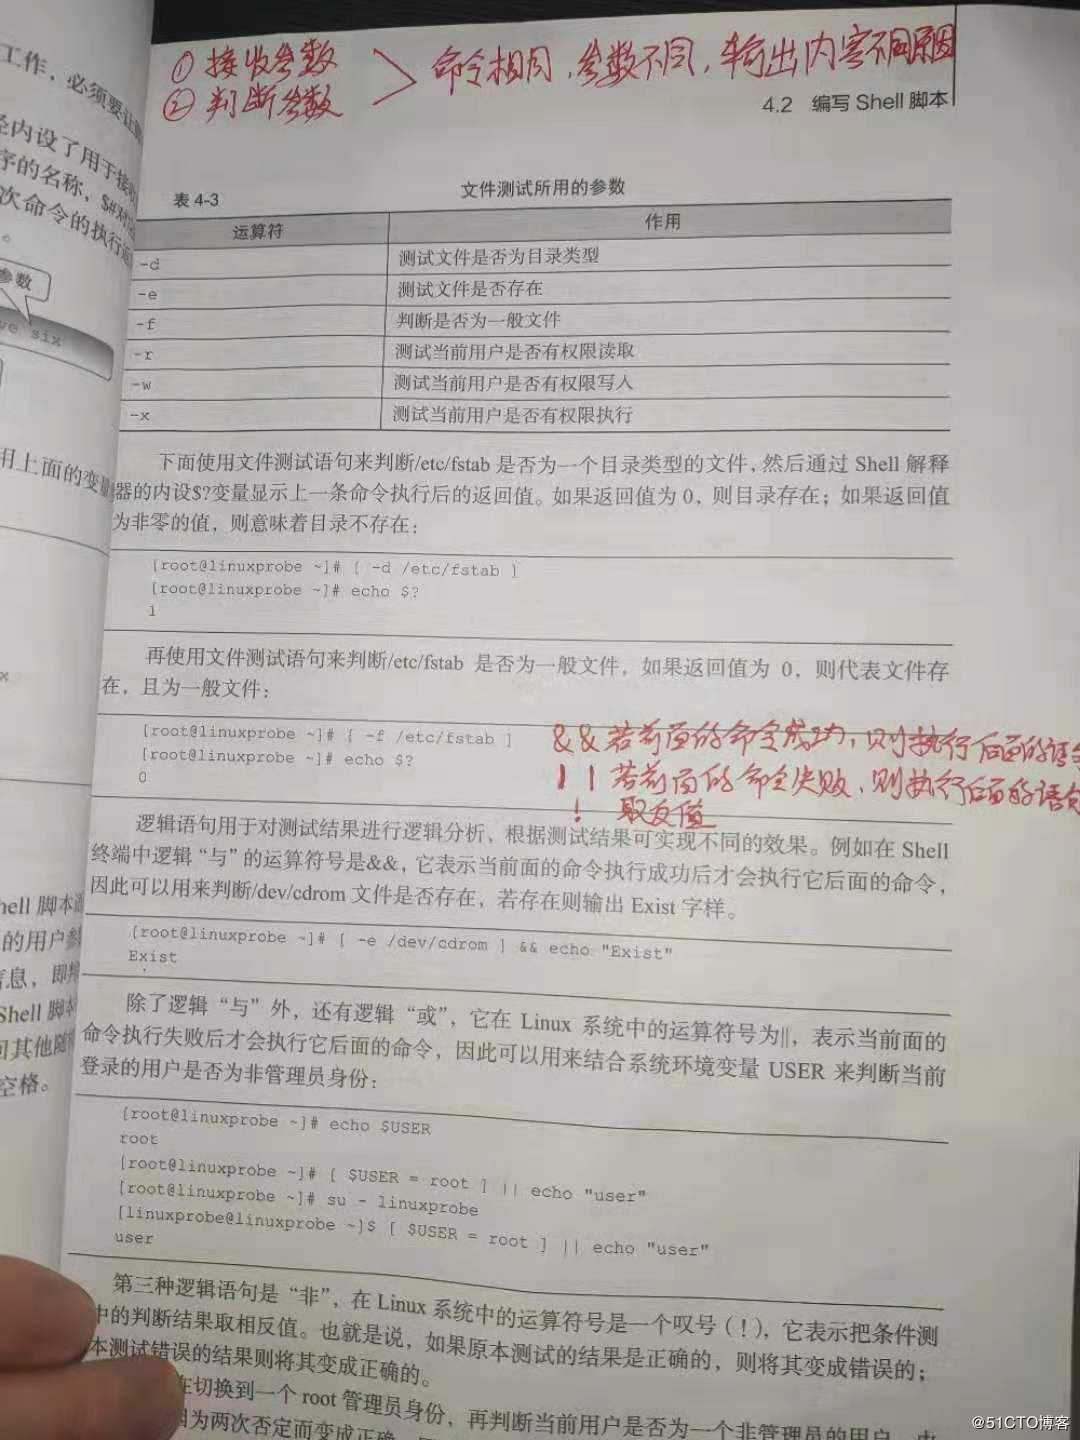 ① 接收参数
② 判断参数
命令相同，参数不同，输出内容不同原因
4.2 编写 Shell 脚本
表 4-3 文件测试所用的参数
运算符 作用
-d 测试文件是否为目录类型
-e 测试文件是否存在
-f 判断是否为一般文件
-r 测试当前用户是否有权限读取
-w 测试当前用户是否有权限写入
-x 测试当前用户是否有权限执行
下面使用文件测试语句来判断/etc/fstab 是否为一个目录类型的文件，然后通过 Shell 解释
器的内设$?变量显示上一条命令执行后的返回值。如果返回值为 0，则目录存在；如果返回值
为非零的值，则意味着目录不存在：
[root@linuxprobe ~]# [ -d /etc/fstab ]
[root@linuxprobe ~]# echo $?
1
再使用文件测试语句来判断/etc/fstab 是否为一般文件，如果返回值为 0，则代表文件存
在，且为一般文件：
[root@linuxprobe ~]# [ -f /etc/fstab ]
[root@linuxprobe ~]# echo $?
0
&& 若前面的命令成功，则执行后面的语
|| 若前面的命令失败，则执行后面的语句
! 取反值
逻辑语句用于对测试结果进行逻辑分析，根据测试结果可实现不同的效果。例如在 Shell
终端中逻辑“与”的运算符号是&&，它表示当前面的命令执行成功后才会执行它后面的命令，
因此可以用来判断/dev/cdrom 文件是否存在，若存在则输出 Exist 字样。
[root@linuxprobe ~]# [ -e /dev/cdrom ] && echo "Exist"
Exist
除了逻辑“与”外，还有逻辑“或”，它在 Linux 系统中的运算符号为||，表示当前面的
命令执行失败后才会执行它后面的命令，因此可以用来结合系统环境变量 USER 来判断当前
登录的用户是否为非管理员身份：
[root@linuxprobe ~]# echo $USER
root
[root@linuxprobe ~]# [ $USER = root ] || echo "user"
[root@linuxprobe ~]# su - linuxprobe
[linuxprobe@linuxprobe ~]$ [ $USER = root ] || echo "user"
user
第三种逻辑语句是“非”，在 Linux 系统中的运算符号是一个叹号（!），它表示把条件测
中的判断结果取相反值。也就是说，如果原本测试的结果是正确的，则将其变成错误的；
本测试错误的结果则将其变成正确的。
在切换到一个 root 管理员身份，再判断当前用户是否为一个非管理员的用户，由
因为两次否定而变成正确
工作，必须要让
内设了用于接收
序的名称，$#对
次命令的执行返
参数
ve six
用上面的变量
hell 脚本
的用户参
信息，即
Shell 脚本
其他随
空格。
@51CTO博客